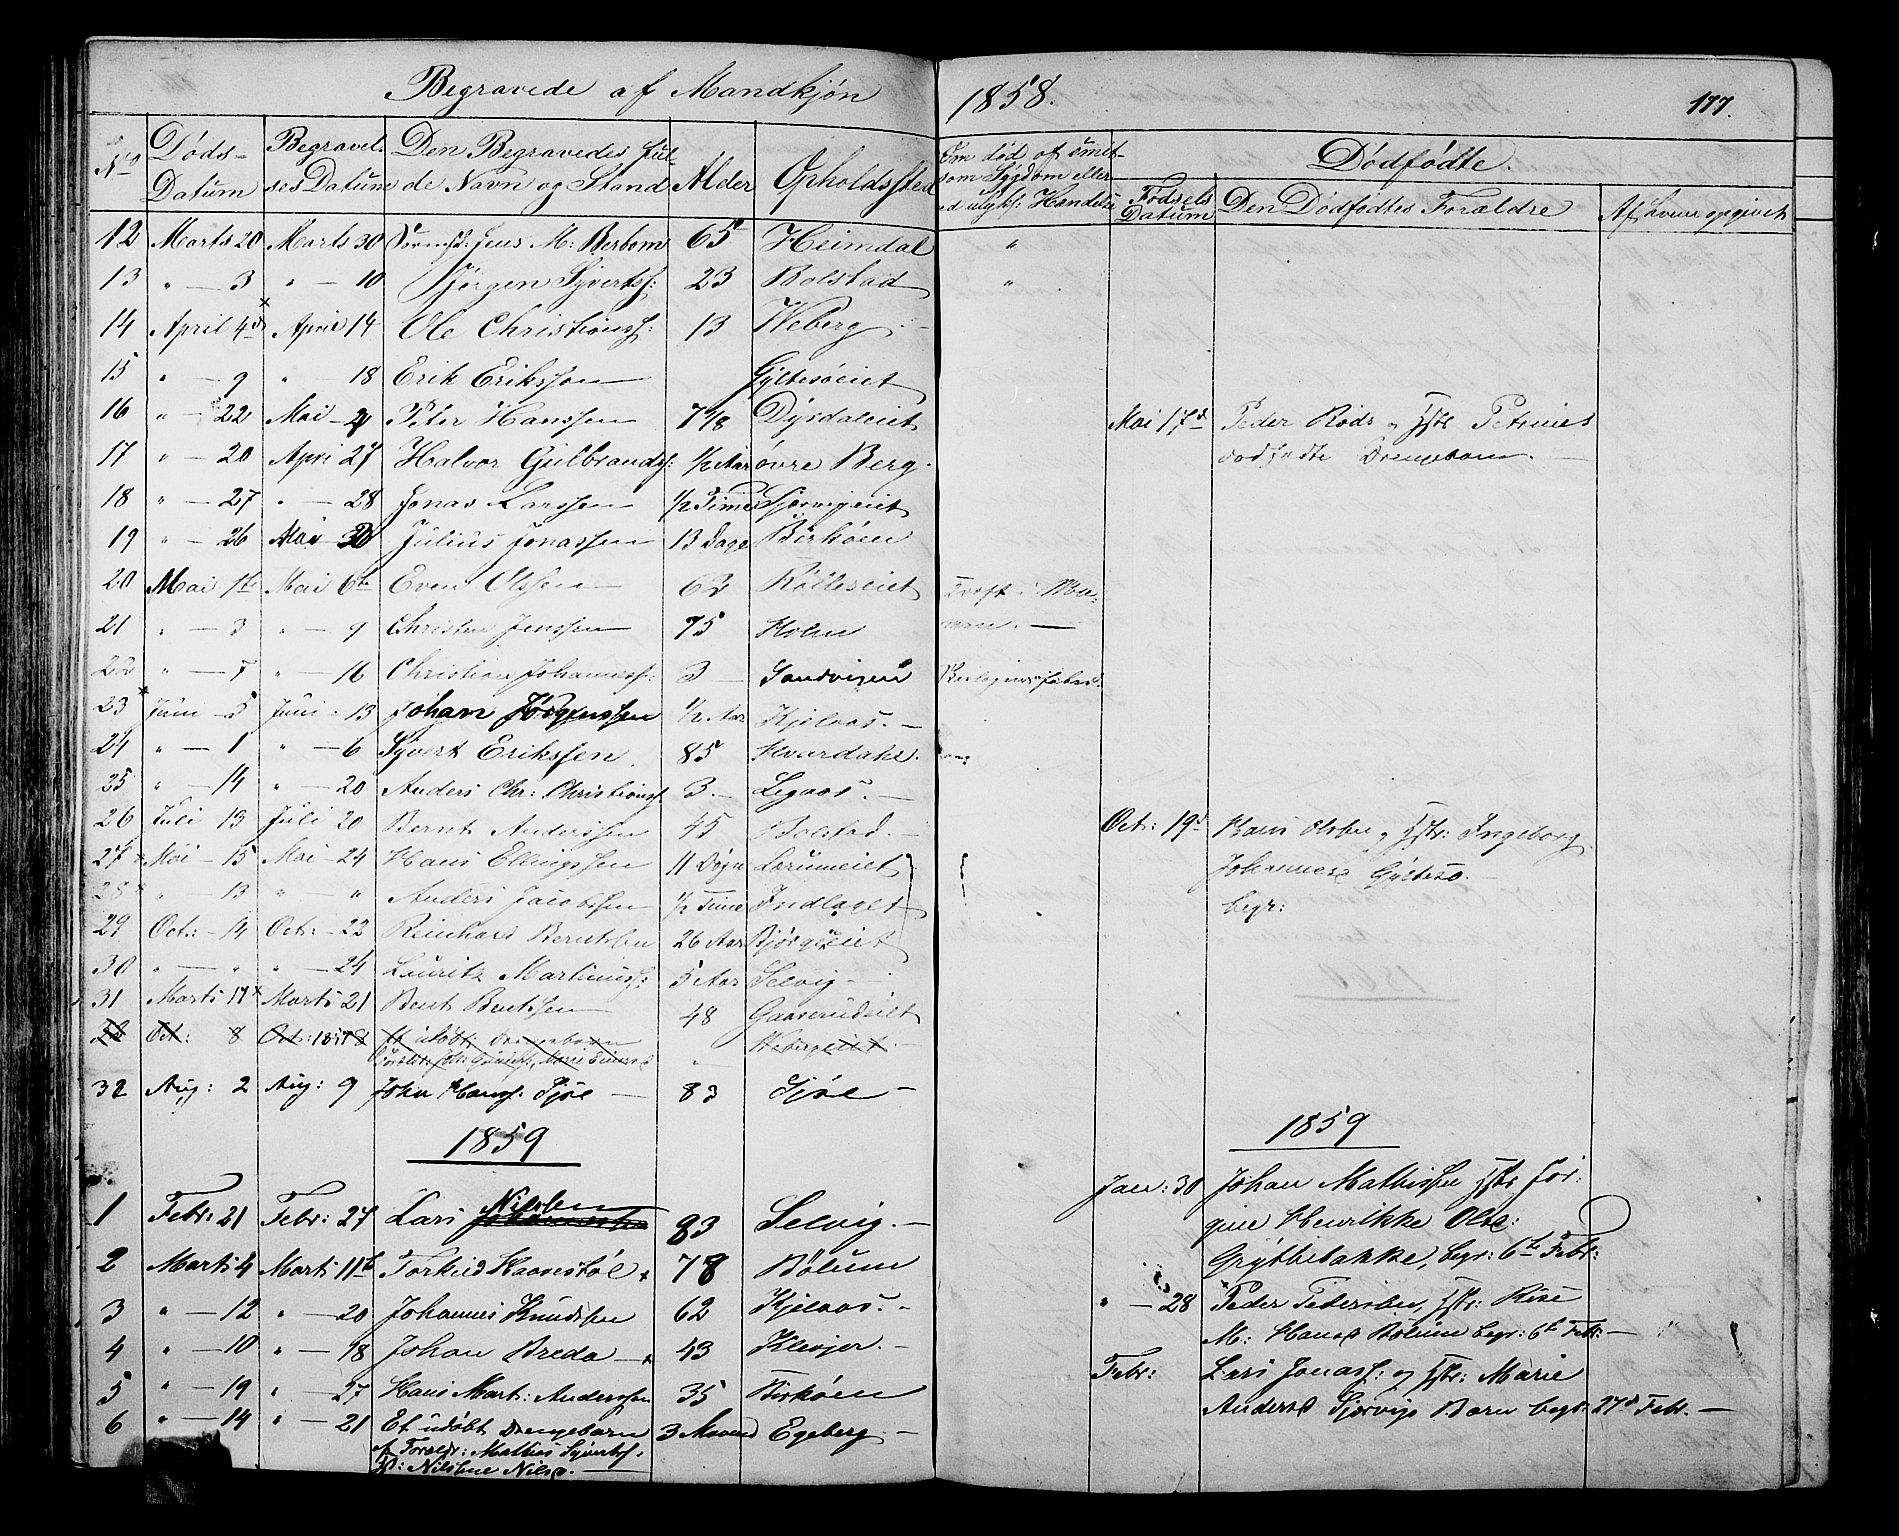 Begravede af Mandkjøn 1858. 177.
No Døds-Datum Begravelses Datum Den Begravedes fulde Navn og Stand Alder Opholdssted Om død af smitsom Sygdom eller ved ulykk: Handelse
Dødfødte.
Fødsels Datum Den Dødfødtes Forældre Af hvem opgivet
12 Marts 20 Marts 30 Jens M: Berbom 65 Heimdal "
13 " — 3 " — 10 Jørgen Syverts: 23 Bolstad "
14 April 4de April 14 Ole Christians: 13 Weberg —
15 " — 9 " 18 Erik Erikssen Gyltesøeiet
16 " — 22 Mai — 24 Peter Hanssen 7 1/8 Dysdaleiet
Mai 17de Peder Røds og Hstr Petrines
dødfødte Drengebarn. —
17 " — 20 Apri 27 Halvor Gulbrands: 1/2 Aar øvre Berg.
18 " — 27 " — 28 Jonas Larssen 1/2 Time Sjørvigeiet
19 " — 26 Mai 30 Julius Jonassen 13 Dage Birkøen
20 Mai 1te Mai 6te Even Olssen 62 Rølleseiet
21 " — 3 " — 9 Christen Jenssen 75 Holm
22 " — 7 " — 16 Christian Johannes: 3 — Sandvigen
23 Juni — 5 Juni — 13 Johan Jørgenssen 1/2 Aar Kjelaas. —
24 " — 1 " — 6 Syvert Erikssen. 85 Hvardahl.
25 " — 14 " — 20 Anders Chr: Christians: 3. — Legaas. —
26 Juli 13 Juli 20 Bernt Anderssen 45 Bolstad. —
Oct: 19de Hans Olssen og Hstr: Ingeborg
Johannesd Gyltesø. —
begr:
27 Mai — 15 Mai — 24 Hans Ellingssen 11 Døgn Lerumeiet
28 " — 13 " — " Anders Jacobssen 1/2 Time Indlaget
29 Oct: — 14 Oct: — 22 Reinhard Berntsen 26 Aar Bjørgeeiet
30 " — " " — 24 Lauritz Martinius: 5 Aar Selvig —
31 Marts 17 Marts 21 Bent Bentssen 48 Gaaserudeiet
32 Oct: 8 Oct: 1857 Et udøbt Drengebarn Webergeiet
32 Aug: 2 Aug: 9 John Hans: Fjøse — 83 Fjøse —
1859
1859
1 Febr: 21 Febr: 27 Lars Nilssen 83 Selvig. —
Jan: 30 Johan Mathissen Hstr Jør-
gine Henrikke Olsd:
Gryttebakke, begr: 6te Febr:
2 Marts 4 Marts 11te Torkild Haavestøl 78 Bølum
3 " — 12 " — 20 Johannes Knudssen 62 Kjelaas. —
" — 28 Peder Pedersen, Hstr: Rise
M: Hansd Bølum begr: 6te Febr: —
4 " — 10 " — 18 Johan Breda — 43 Klevjer. —
5 " — 19 " — 27 Hans Mart: Anderssen 35 Birkøen
Febr: Lars Jonass: og Hstr: Marie
Andersd Sjørvig Barn begr: 27de Febr. —
6 " — 14 " — 21 Et udøbt Drengebarn 3 Maaned Egeberg —
af Forældr: Mathias Syverts:
H: Nilsine Nilsd. —